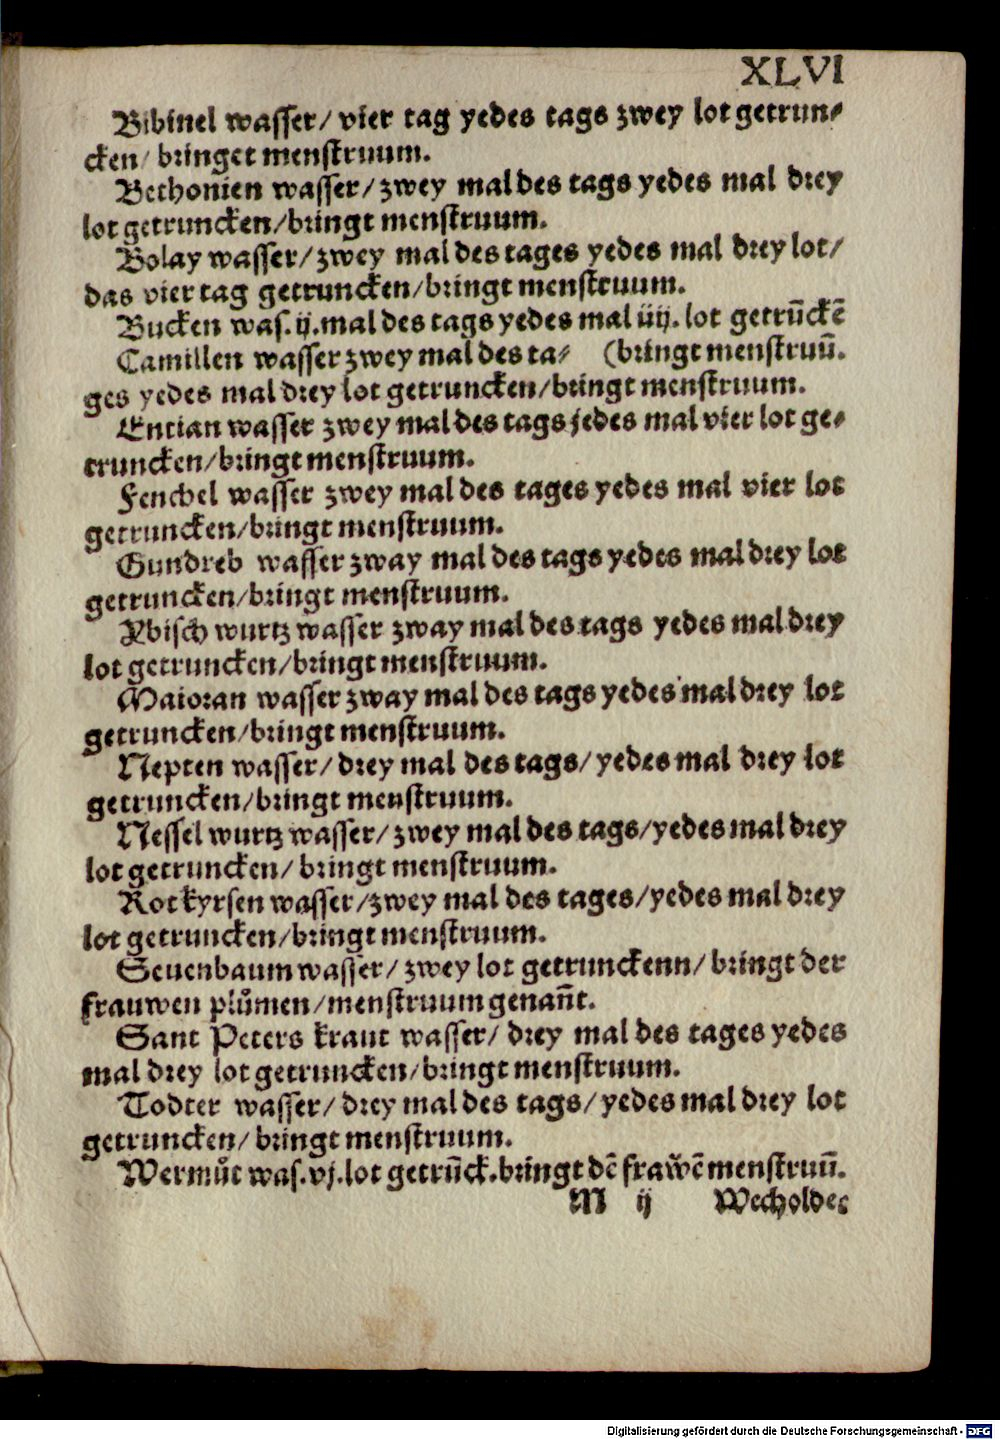 XLVI
Bibinel wasser/ vier tag yedes tags zwey lot getrun⸗
cken/ bringet menstruum.
Bethonien wasser/ zwey mal des tags yedes mal drey
lot getruncken/bringt menstruum.
Bolay wasser/zwey mal des tages yedes mal drey lot/
das vier tag getruncken/bringt menstruum.
Bucken was. ij. mal des tags yedes mal iiij. lot getrūckē
Camillen wasser zwey mal des ta⸗ (bringt menstruū.
ges yedes mal drey lot getruncken/bringt menstruum.
Entian wasser zwey mal des tags jedes mal vier lot ge⸗
truncken/bringt menstruum.
Fenchel wasser zwey mal des tages yedes mal vier lot
getruncken/bringt menstruum.
Gundreb wasser zway mal des tags yedes mal drey lot
getruncken/bringt menstruum.
Ybisch wurtz wasser zway mal des tags yedes mal drey
lot getruncken/bringt menstruum.
Maioran wasser zway mal des tags yedes mal drey lot
getruncken/bringt menstruum.
Nepten wasser/ drey mal des tags/ yedes mal drey lot
getruncken/bringt menstruum.
Nessel wurtz wasser/ zwey mal des tags/yedes mal drey
lot getruncken/ bringt menstruum.
Rot kyrsen wasser/zwey mal des tages/yedes mal drey
lot getruncken/bringt menstruum.
Seuenbaum wasser/ zwey lot getrunckenn/ bringt der
frauwen plůmen/menstruum genañt.
Sant Peters kraut wasser/ drey mal des tages yedes
mal drey lot getruncken/bringt menstruum.
Todter wasser/ drey mal des tags/ yedes mal drey lot
getruncken/ bringt menstruum.
Wermůt was. vj. lot getrūck. bringt dē frawē menstruū.
M ij Wecholder
Digitalisierung gefördert durch die Deutsche Forschungsgemeinschaft - DFG